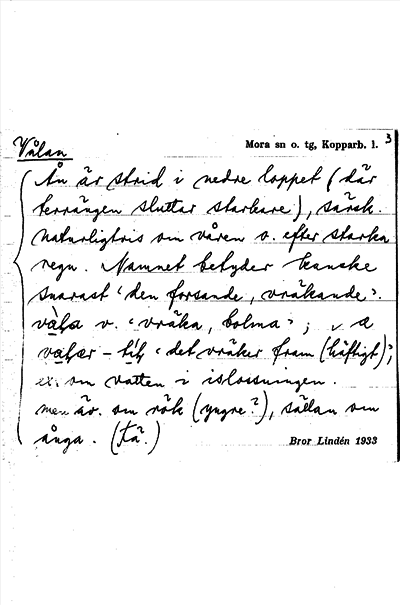 Vålan
Mora sn o. tg, Kopparb. l. 3
Ån är strid i nedre loppet (där
terrängen sluttar starkare), särsk.
naturligtvis om våren o. efter starka
regn. Namnet betyder kanske
snarast 'den forsande, vräkande'.
vàla v. 'vräka, bolma';
– til 'det vräker fram (häftigt)',
om vatten i islossningen.
men äv. om rök (yngre?), sällan om
ånga.
Bror Lindén 1933